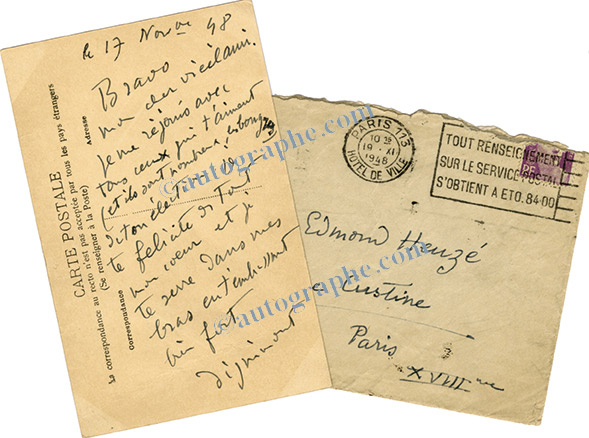 le 17 Novre 48
Bravo
mon cher vieil ami.
je me réjouis avec
tous ceux qui t'aiment
(et ils sont nombreux, les bougres)
de ton élection! Je
te félicite de tout
mon cœur et je
te serre dans mes
bras en t'embrassant
bien fort
Dignimont
CARTE POSTALE
La correspondance au recto n'est pas acceptée par tous les pays étrangers
(Se renseigner à la Poste)
Correspondance
Adresse
PARIS 113
10 H
19 - XI
1948
HOTEL DE VILLE
TOUT RENSEIGNEMENT
SUR LE SERVICE POSTAL
S'OBTIENT A ETO. 84-00
Edmond Heuzé
Custine
Paris
XVIIIme
©autographe.com
©autographe.com
©autographe.com